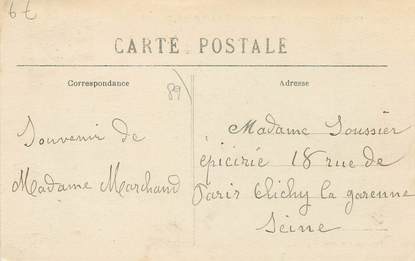 6t
CARTE POSTALE
Correspondance
Adresse
89
Souvenir de
Madame Marchand
Madame Soussier
épicirie 18 rue de
Paris Clichy la garenne
Seine